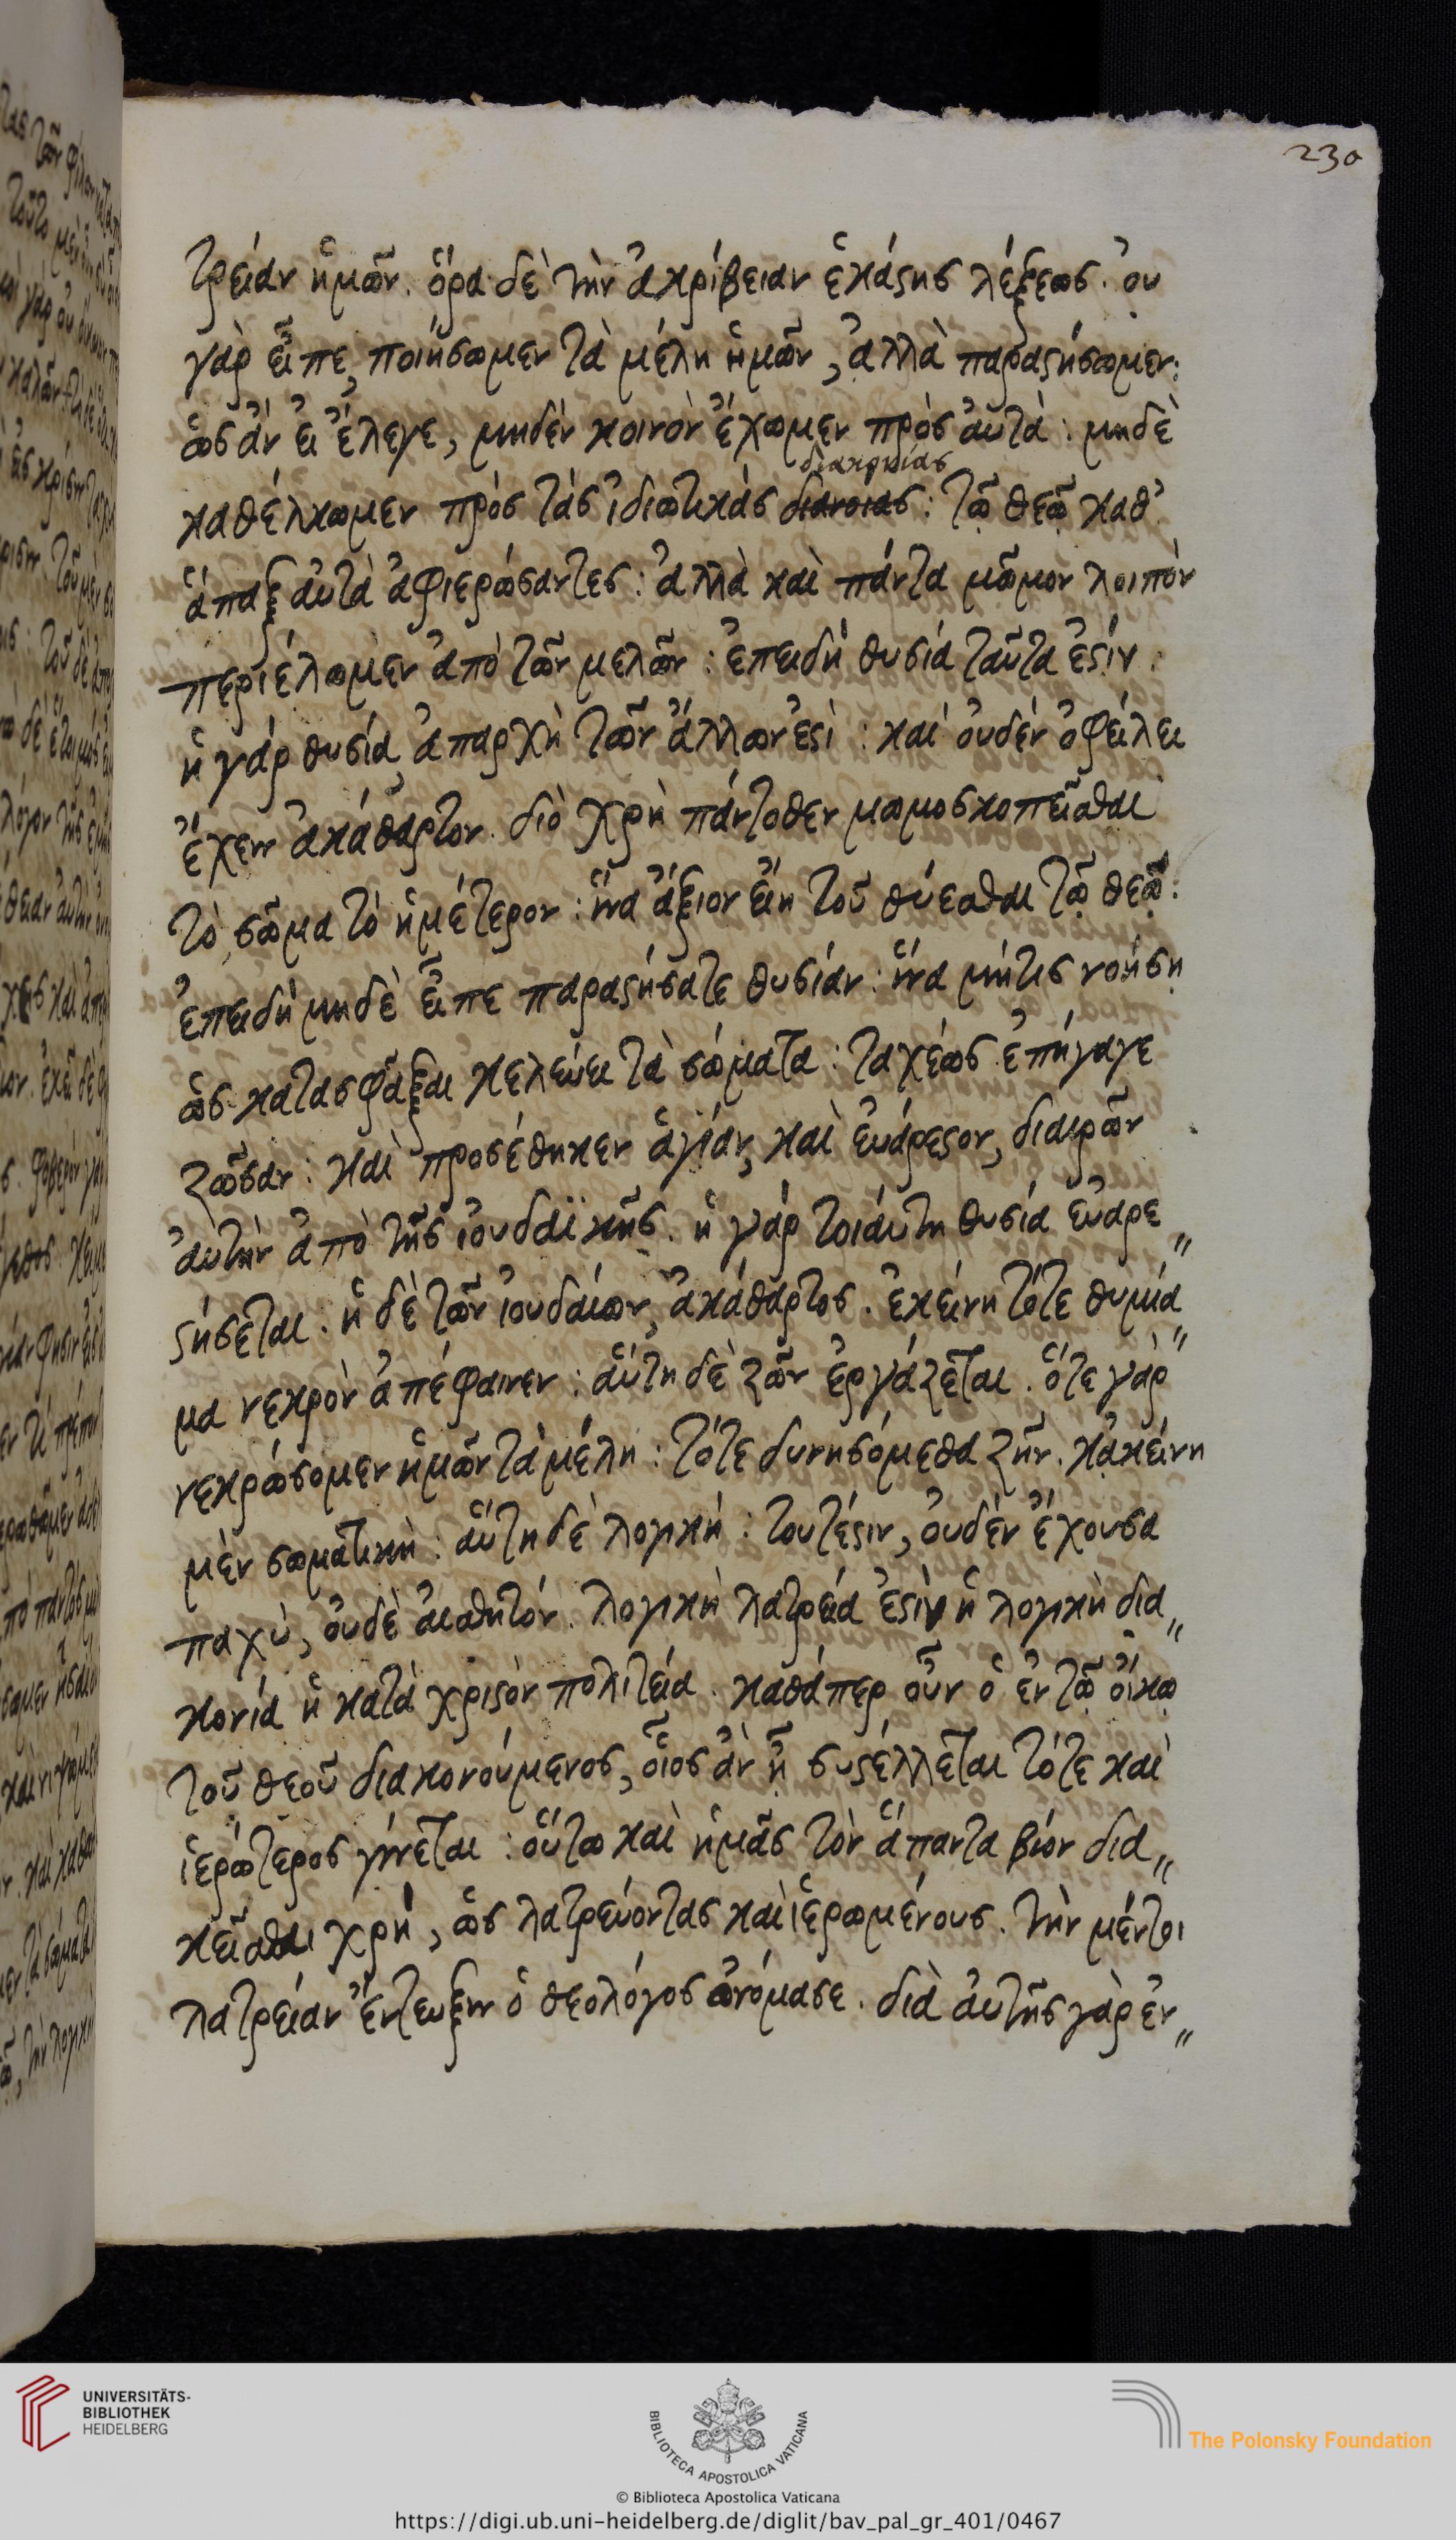 230
τρείαν ἡμῶν. ὅρα δὲ τὴν ἀκρίβειαν ἑκάστης λέξεως. οὐ
γὰρ εἶπε, ποιήσωμεν τὰ μέλη ἡμῶν, ἀλλὰ παραστήσωμεν:
ὡσὰν εἰ ἔλεγε, μηδὲν κοινὸν ἔχωμεν πρὸς αὐτὰ: μηδὲ
διακονίας
καθέλκωμεν πρὸς τὰς ἰδιωτικὰς διανοίας: τῷ θεῷ καθ'
ἅπαξ αὐτὰ ἀφιερώσαντες: ἀλλὰ καὶ πάντα μῶμον λοιπὸν
περιέλωμεν ἀπὸ τῶν μελῶν: ἐπειδὴ θυσία ταῦτα ἐστίν.
ἡ γάρ θυσία, ἀπαρχὴ τῶν ἄλλων ἐστὶ: καὶ οὐδὲν ὀφείλει
ἔχειν ἀκάθαρτον. διὸ χρὴ πάντοθεν μωμοσκοπεῖσθαι
τὸ σῶμα τὸ ἡμέτερον: ἵνα ἄξιον εἴη τοῦ θύεσθαι τῷ θεῷ:
ἐπειδὴ μηδὲ εἶπε παραστήσατε θυσίαν: ἵνα μήτις νοήση
ὡς κατασφάξαι κελεύει τὰ σώματα: ταχέως ἐπήγαγε
ζῶσαν: καὶ προσέθηκεν ἁγίαν, καὶ εὐάρεστον, διαιρῶν
αὐτὴν ἀπὸ τῆς ἰουδαϊκῆς. ἡ γάρ τοιάυτη θυσία εὐαρε„
στήσεται. ἡ δὲ τῶν ἰουδαίων, ἀκάθαρτος. ἐκείνη τότε θυμία„
μα νεκρὸν ἀπέφαινεν: αὕτη δὲ ζῶν ἐργάζεται. ὅτε γὰρ
νεκρώσομεν ἡμῶν τὰ μέλη: τότε δυνησόμεθα ζῆν. κἀκείνη
μὲν σωματικὴ: αὕτη δὲ λογικὴ: τουτέστιν, οὐδὲν ἔχουσα
παχὺ, οὐδὲ αἰσθητόν. λογικὴ λατρεία ἐστὶν ἡ λογικὴ δια„
κονία ἡ κατὰ χριστὸν πολιτεία. καθάπερ οὖν ὁ ἐν τῷ οἴκῳ
τοῦ θεοῦ διακονούμενος, οἷος ἂν ᾖ συστέλλεται τότε καὶ
ἱερώτερος γίνεται: οὕτω καὶ ἡμᾶς τὸν ἅπαντα βίον δια„
κεῖσθαι χρή, ὡς λατρεύοντας καὶ ἱερωμένους. τὴν μέντοι
λατρείαν ἔντευξιν ὁ θεολόγος ὠνόμασε. διὰ αὐτῆς γὰρ ἐν„
UNIVERSITÄTS-
BIBLIOTHEK
HEIDELBERG
BIBLIOTECA APOSTOLICA VATICANA
© Biblioteca Apostolica Vaticana
The Polonsky Foundation
https://digi.ub.uni-heidelberg.de/diglit/bav_pal_gr_401/0467